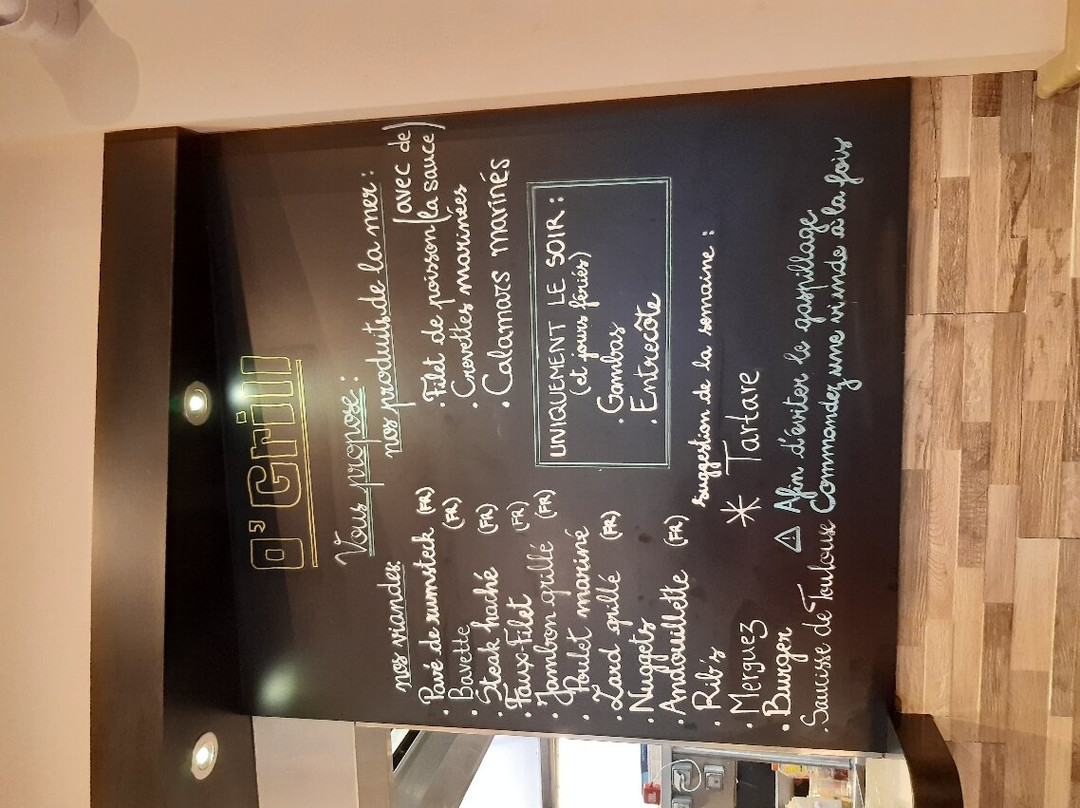 O' Grill
Vous propose :
nos viandes
. Pavé de rumsteck (FR)
. Bavette (FR)
. Steak haché (FR)
. Faux-Filet (FR)
. Jambon grillé (FR)
. Poulet mariné
. Lard grillé (FR)
. Nuggets
. Andouillette (FR)
. Rib's
. Merguez
. Burger
. Saucisse de Toulouse
nos produits de la mer :
. Filet de poisson (avec de la sauce)
. Crevettes marinées
. Calamars marinés
UNIQUEMENT LE SOIR :
(et jours fériés)
. Gambas
. Entrecôte
suggestion de la semaine :
* Tartare
⚠ Afin d'éviter le gaspillage
Commandez une viande à la fois